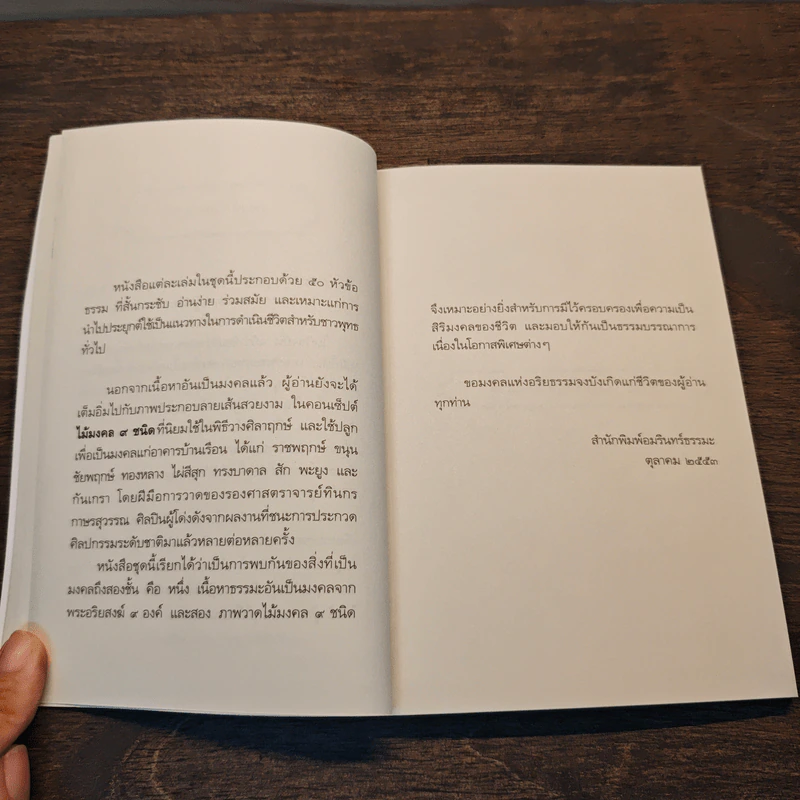 หนังสือแต่ละเล่มในชุดนี้ประกอบด้วย ๕๐ หัวข้อ
ธรรม ที่สั้นกระชับ อ่านง่าย ร่วมสมัย และเหมาะแก่การ
นำไปประยุกต์ใช้เป็นแนวทางในการดำเนินชีวิตสำหรับชาวพุทธ
ทั่วไป
นอกจากเนื้อหาอันเป็นมงคลแล้ว ผู้อ่านยังจะได้
เต็มอิ่มไปกับภาพประกอบลายเส้นสวยงาม ในคอนเซ็ปต์
ไม้มงคล ๙ ชนิด ที่นิยมใช้ในพิธีวางศิลาฤกษ์ และใช้ปลูก
เพื่อเป็นมงคลแก่อาคารบ้านเรือน ได้แก่ ราชพฤกษ์ ขนุน
ชัยพฤกษ์ ทองหลาง ไผ่สีสุก ทรงบาดาล สัก พะยูง และ
กันเกรา โดยฝีมือการวาดของรองศาสตราจารย์ทินกร
กาษรสุวรรณ ศิลปินผู้โด่งดังจากผลงานที่ชนะการประกวด
ศิลปกรรมระดับชาติมาแล้วหลายต่อหลายครั้ง
หนังสือชุดนี้เรียกได้ว่าเป็นการพบกันของสิ่งที่เป็น
มงคลถึงสองชั้น คือ หนึ่ง เนื้อหาธรรมะอันเป็นมงคลจาก
พระอริยสงฆ์ ๙ องค์ และสอง ภาพวาดไม้มงคล ๙ ชนิด
จึงเหมาะอย่างยิ่งสำหรับการมีไว้ครอบครองเพื่อความเป็น
สิริมงคลของชีวิต และมอบให้กันเป็นธรรมบรรณาการ
เนื่องในโอกาสพิเศษต่างๆ
ขอมงคลแห่งอริยธรรมจงบังเกิดแก่ชีวิตของผู้อ่าน
ทุกท่าน
สำนักพิมพ์อมรินทร์ธรรมะ
ตุลาคม ๒๕๕๓